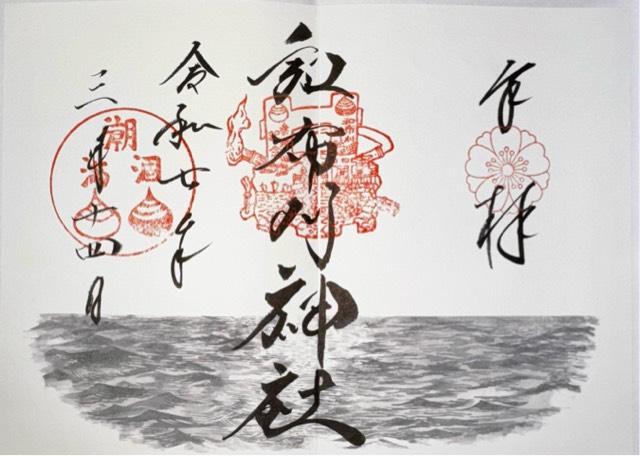 奉拝
和布刈神社
令和七年
三月十四日